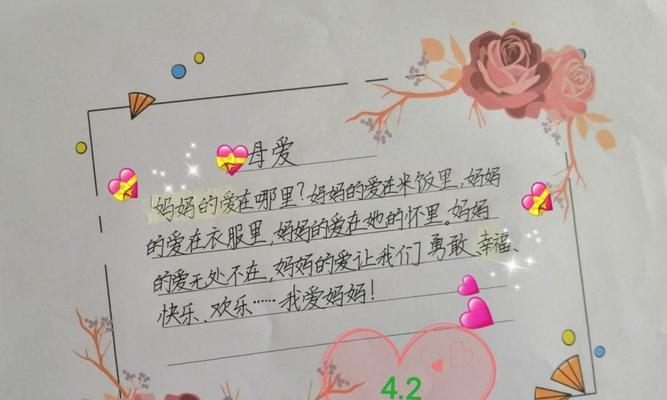 母爱
妈妈的爱在哪里?妈妈的爱在米饭里,妈妈
的爱在衣服里,妈妈的爱在她的怀里。妈妈
的爱无处不在,妈妈的爱让我们勇敢、幸福、
快乐、欢乐……我爱妈妈!
4.2